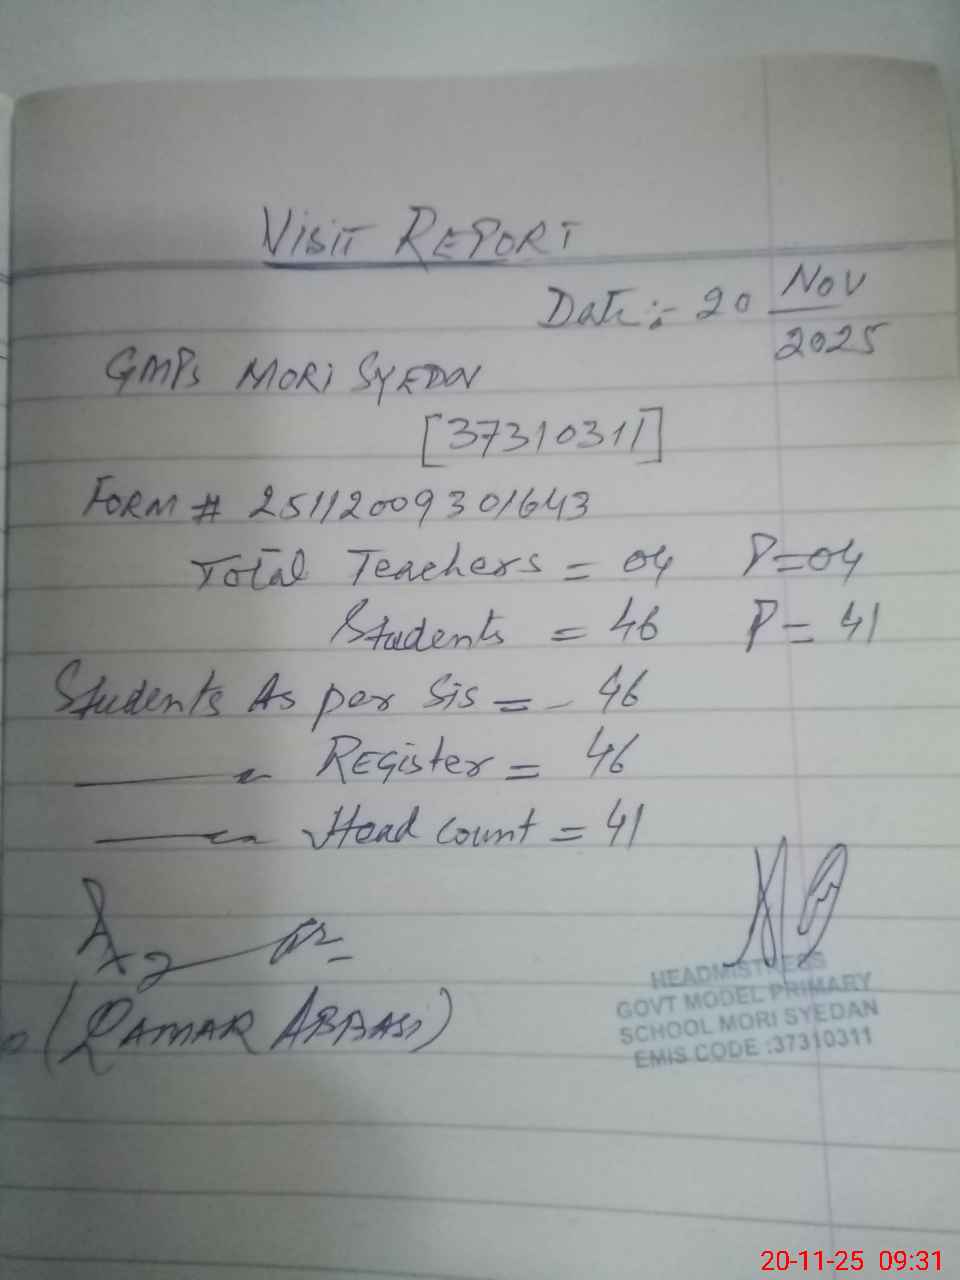 VISIT REPORT
Date:- 20 Nov 2025
GMPS MORI SYEDAN
[37310311]
FORM # 25112009301643
Total Teachers = 04 P=04
Students = 46 P= 41
Students As per SIS = - 46
——— " Register = 46
——— " Head count = 41
(QAMAR ABBASI)
HEADMISTRESS
GOVT MODEL PRIMARY
SCHOOL MORI SYEDAN
EMIS CODE :37310311
20-11-25 09:31